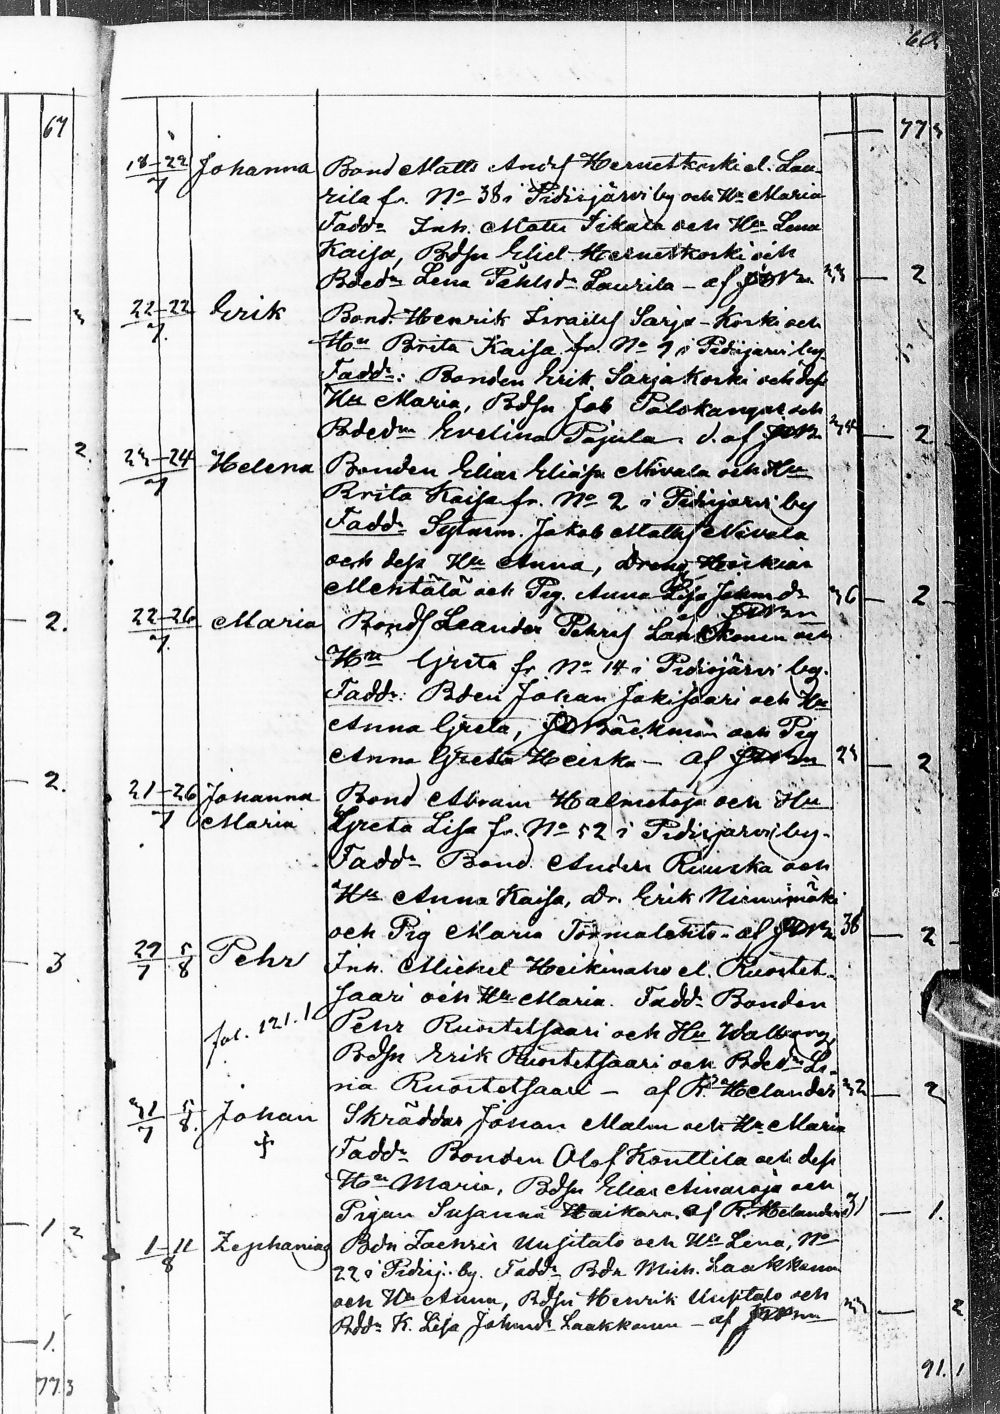 67
77 3
18–22
7
Johanna
Bond Matts Ands Hernetkoski el. Lau-
rila fr. No 38 i Pidisjärvi by och Hu Maria
Fadd: Inh. Matts och Hu Lena
Kaisa, Bdsn Eliel Hernetkoski och
Bded: Lena Pehlsd: Laurila – af 33 — 2
22–22
7
Erik
Bond. Henrik Israels Sarja-Koski och
Hu Brita Kaisa fr. No 9 i Pidisjärvi by
Fadd: Bonden Erik Sarjakoski och dess
Hu Maria, Bdsn Job Palokangas och
Bded: Evelina Pajula d. af 34 — 2
23–24
7
Helena
Bonden Elias Eliass Nivala och Hu
Brita Kaisa fr. No 2 i Pidisjärvi by
Fadd: Sytnm. Jakob Matts Nivala
och dess Hu Anna, dreng
Mehtälä och Pig. Anna Lisa Johansd: 36 — 2
22–26
7
Maria
Bonds Leander Pehrs Laakkonen och
Hu Greta fr No 14 i Pidisjärvi by.
Fadd: Bden Johan Jokisaari och Hu
Anna Greta, Bäckman och Pig
Anna Greta Heiska – af — 2
21–26
7
Johanna
Maria
Bond Abram Halmetoja och Hu
Greta Lisa fr. No 52 i Pidisjärvi by.
Fadd: Bond. Anders Ruuska och
Hu Anna Kaisa, dr. Erik Niemimäki
och Pig Maria Törmälehto – af 38 — 2
29 – 5
7 8
Pehr
Inh. Michel Heikinaho el. Ruostet-
saari och Hu Maria. Fadd: Bonden
fol. 121.
Pehr Ruostetsaari och Hu Walborg,
Bdsn Erik Ruostetsaari och Bded: Li-
na Ruostetsaari – af R. Helander 32 — 2
31 – 5
7 8.
Johan
†
Skräddar Johan Malm och Hu Maria
Fadd: Bonden Olof Konttila och dess
Hu Maria, Bdsn Elias Ainasoja och
Pigan Susanna Haikara. af R. Helander 31 — 1.
1–11
8
Zephanias
Bdn Zachris Uusitalo och Hu Lena, No
22 i Pidisj. by. Fadd: Bdn Mich. Laakkonen
och Hu Anna, Bdsn Henrik Uusitalo och
Bdd: K. Lisa Johansd: Laakkonen – af 33 — 2
91. 1
2.
2.
2.
3
1 2
1.
77.3